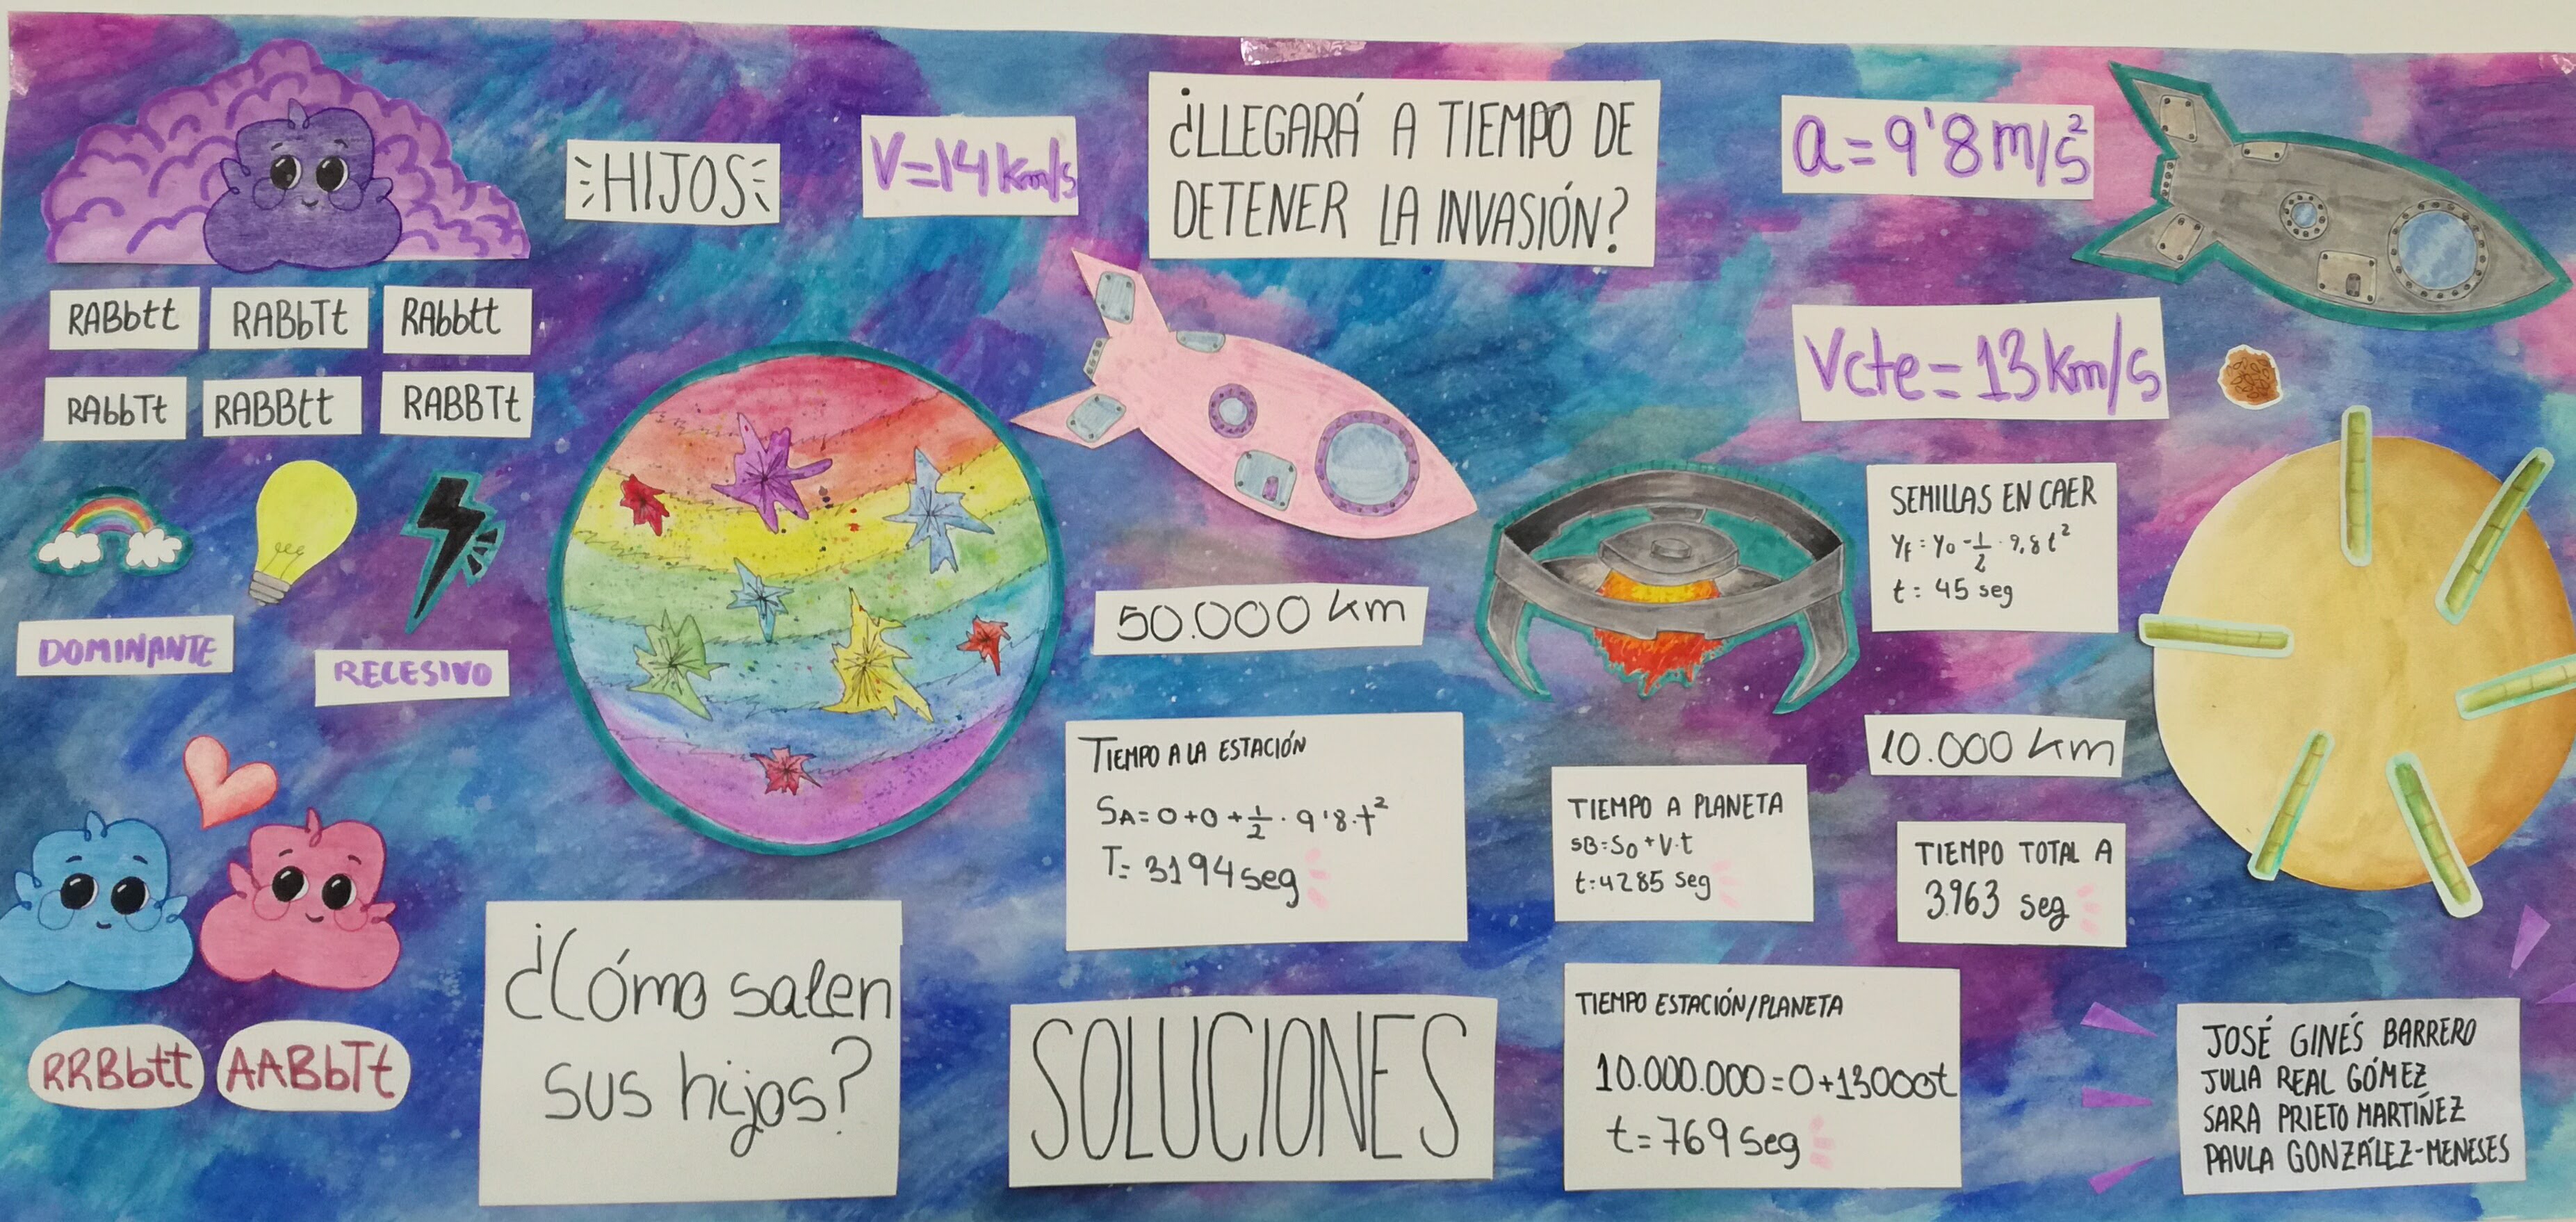 HIJOS
V=14 km/s
¿LLEGARÁ A TIEMPO DE
DETENER LA INVASIÓN?
a=9'8 m/s²
Vcte=13 km/s
RABbtt
RABbTt
RAbbtt
RAbbTt
RABBtt
RABBTt
DOMINANTE
RECESIVO
RRBbtt
AABbTt
¿Cómo salen
sus hijos?
50.000 km
TIEMPO A LA ESTACIÓN
SA=0+0+1/2·9'8·t²
T=3194 seg
SOLUCIONES
SEMILLAS EN CAER
Yf=Yo-1/2·9,8t²
t=45 seg
10.000 km
TIEMPO A PLANETA
SB=So+V·t
t=4285 seg
TIEMPO TOTAL A
3.963 seg
TIEMPO ESTACIÓN/PLANETA
10.000.000=0+13000t
t=769 seg
JOSÉ GINÉS BARRERO
JULIA REAL GÓMEZ
SARA PRIETO MARTÍNEZ
PAULA GONZÁLEZ-MENESES